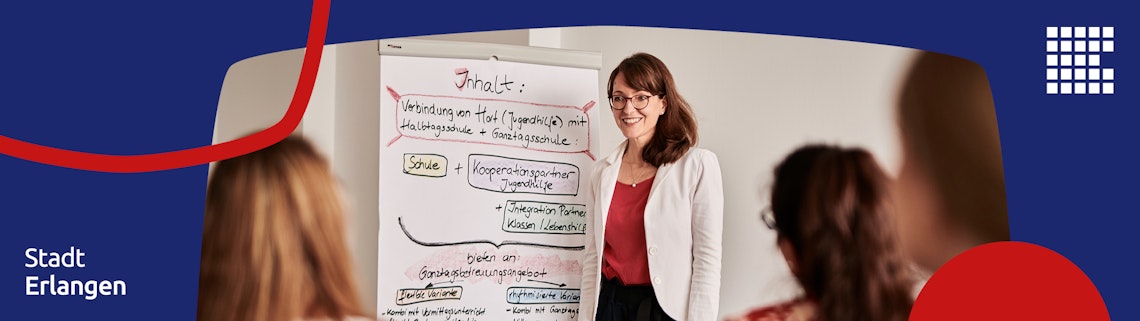 Inhalt:
Verbindung von Hort (Jugendhilfe) mit
Halbtagsschule + Ganztagsschule:
Schule + Kooperationspartner
Jugendhilfe
+ Integration Partner
Klassen / Lebenshil
bieten an:
Ganztagsbetreuungsangebot
flexible Variante rhythmisierte Varian
- Kombi mit Vormittagsunterricht - Kombi mit Ganztags
Stadt
Erlangen